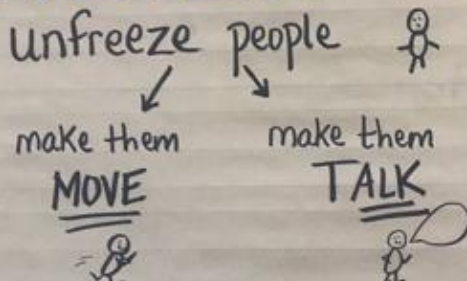 unfreeze people
make them
MOVE
make them
TALK